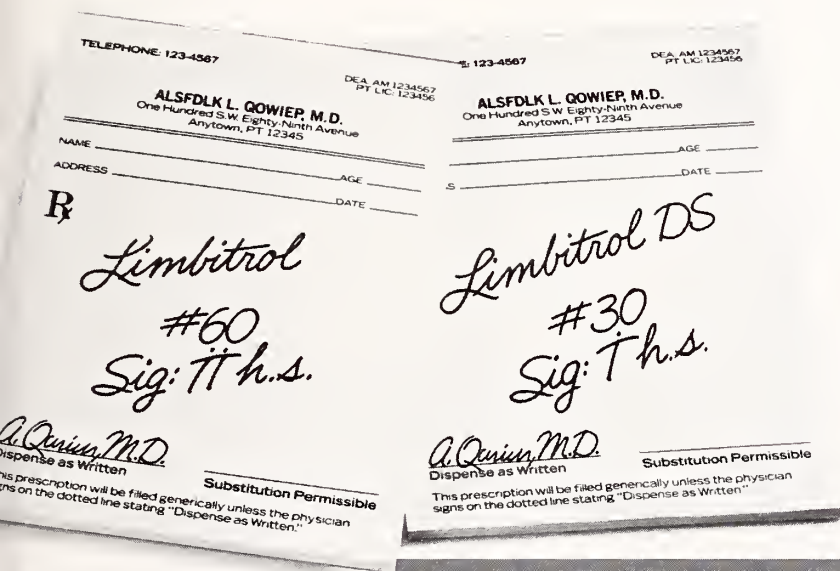 TELEPHONE: 123-4567
DEA. AM 1234567
PT LIC: 123456
ALSFDLK L. QOWIEP, M.D.
One Hundred S.W. Eighty-Ninth Avenue
Anytown, PT 12345
NAME
AGE
ADDRESS
DATE
Rx
Limbitrol
#60
Sig: II h.s.
A. Qurius, M.D.
Dispense as Written
Substitution Permissible
his prescription will be filled generically unless the physician
gns on the dotted line stating "Dispense as Written."
E: 123-4567
DEA. AM 1234567
PT LIC: 123456
ALSFDLK L. QOWIEP, M.D.
One Hundred S W Eighty-Ninth Avenue
Anytown, PT 12345
AGE
S
DATE
Limbitrol DS
#30
Sig: I h.s.
A. Qurius, M.D.
Dispense as Written
Substitution Permissible
This prescription will be filled generically unless the physician
signs on the dotted line stating "Dispense as Written"